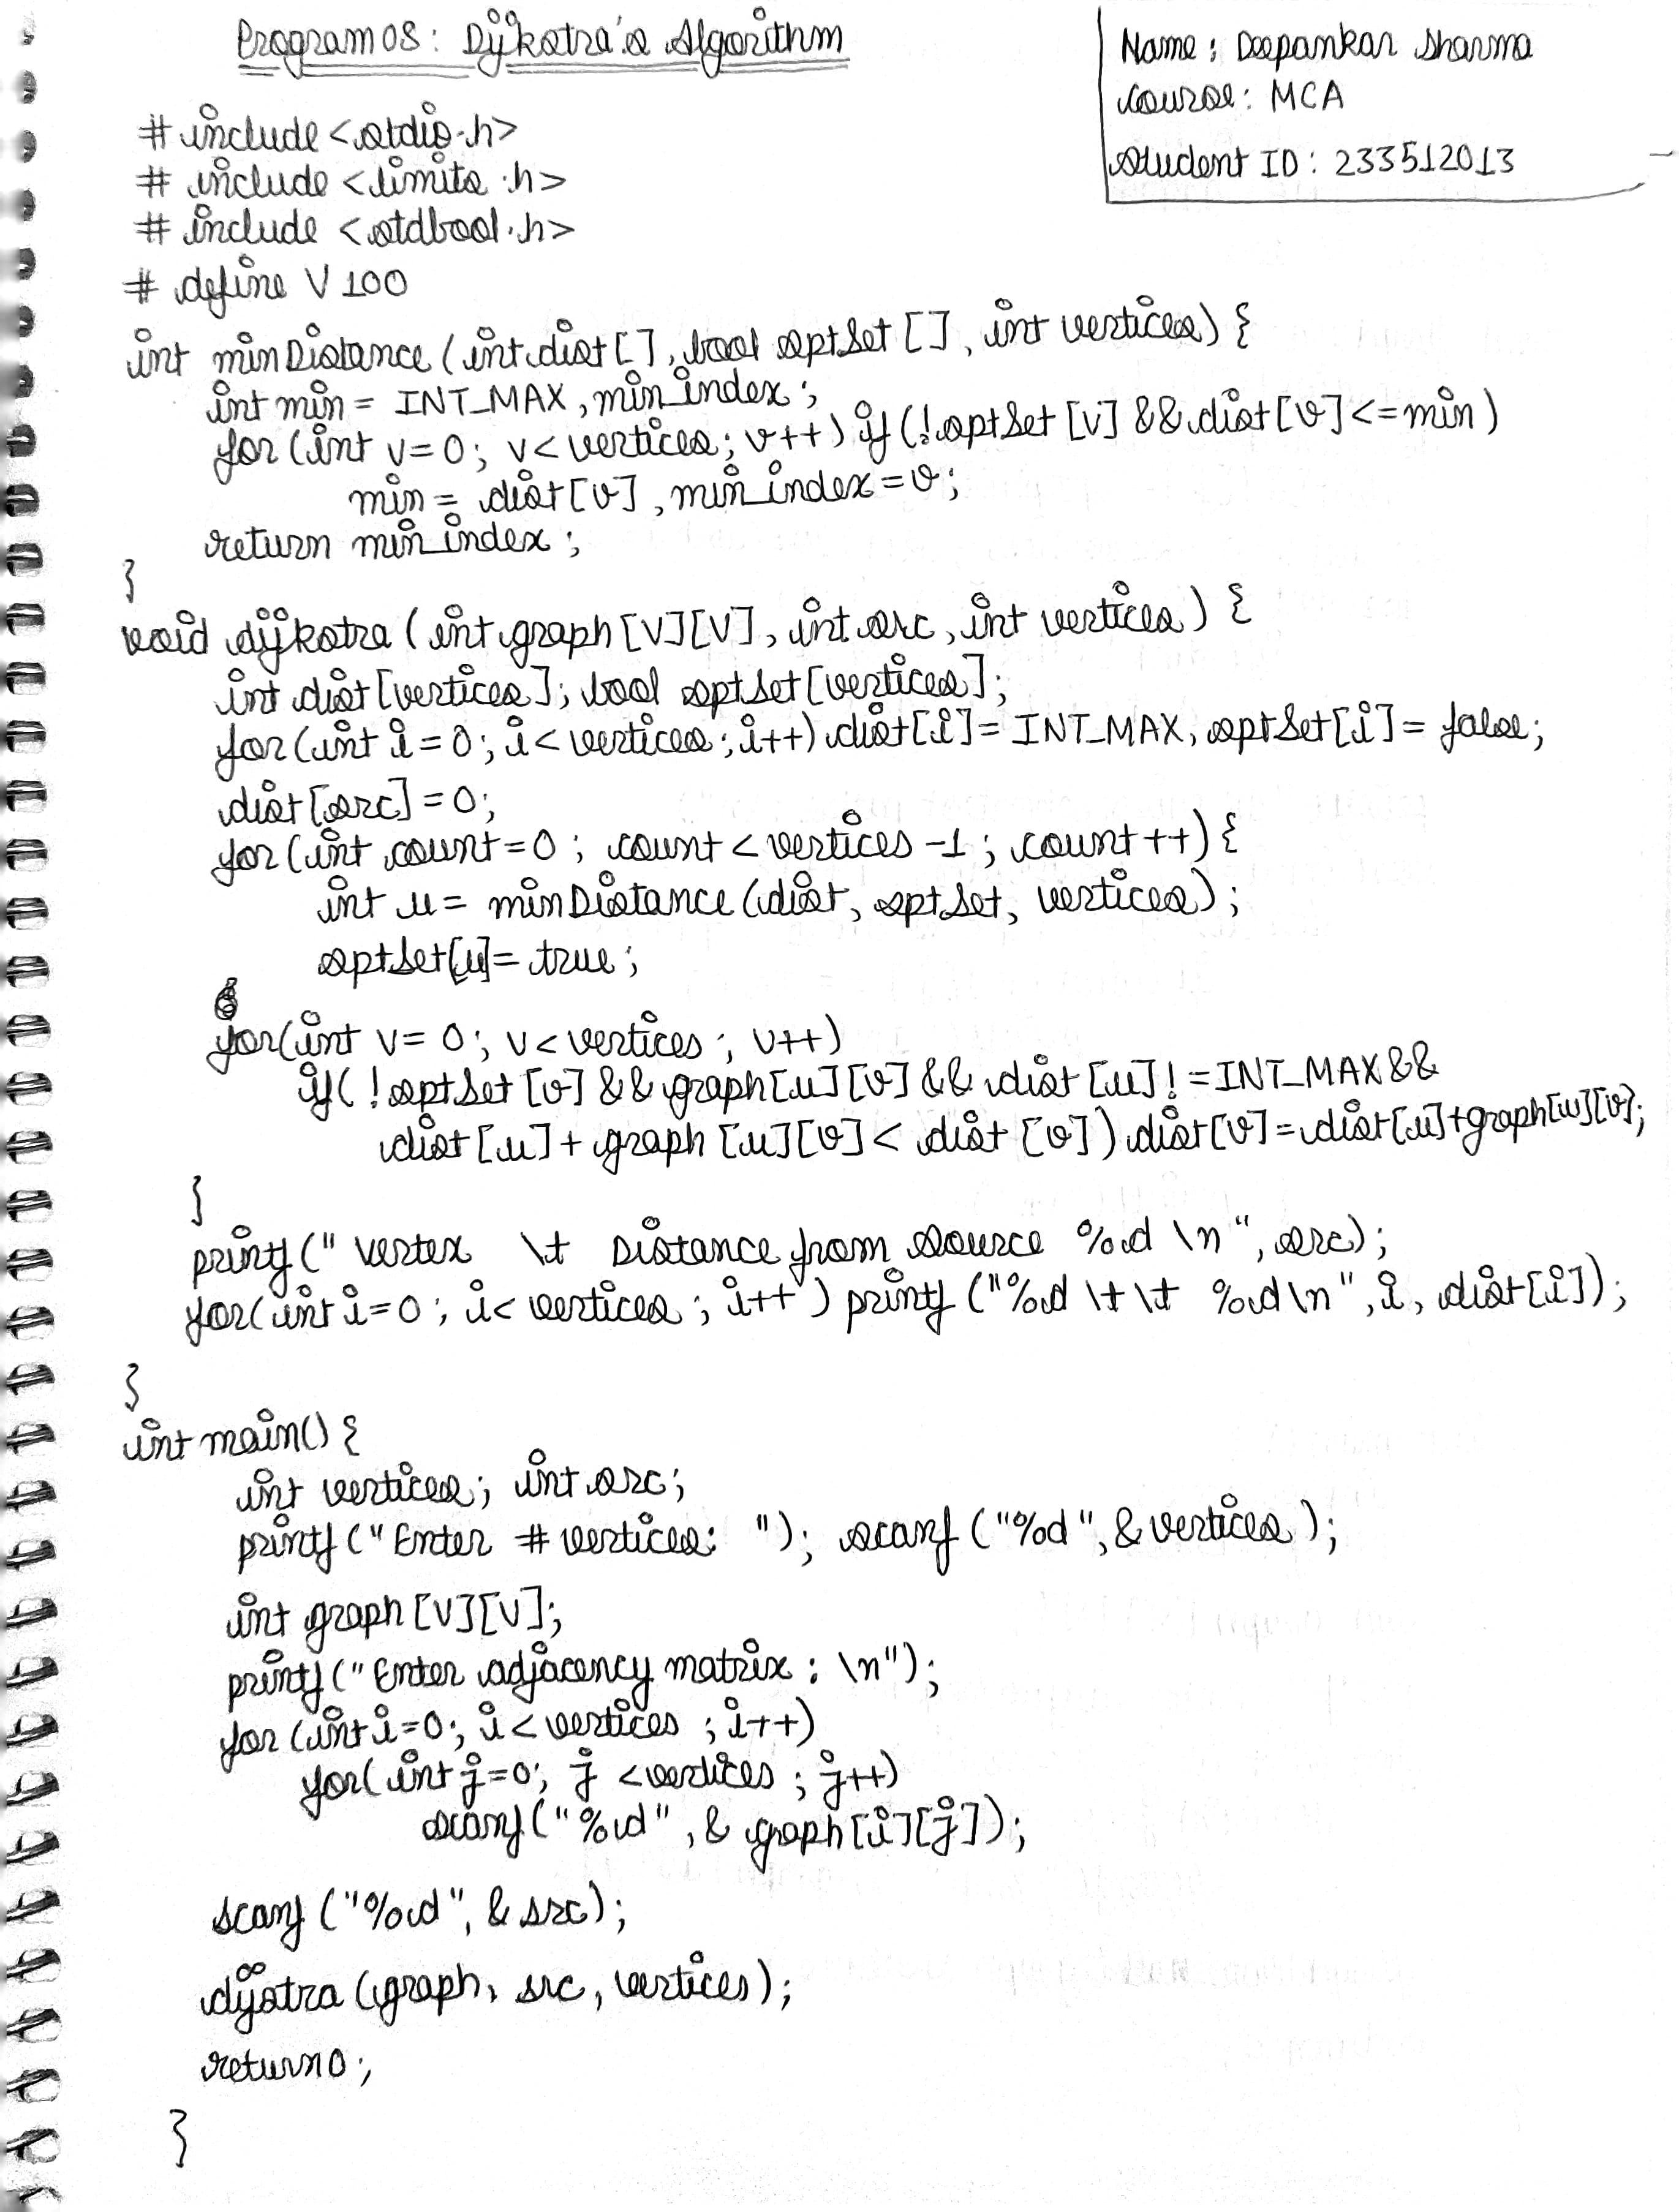 Program 08: Dijkstra's Algorithm
Name: Deepankar Sharma
Course: MCA
Student ID: 233512013
# include <stdio.h>
# include <limits.h>
# include <stdbool.h>
# define V 100
int minDistance (int dist[], bool sptSet [], int vertices) {
int min = INT_MAX, min_index;
for (int v=0; v< vertices; v++) if (!sptSet [v] && dist[v] <= min)
min = dist[v], min_index = v;
return min_index;
}
void dijkstra (int graph [V][V], int src, int vertices) {
int dist [vertices]; bool sptSet [vertices];
for (int i = 0; i < vertices; i++) dist[i] = INT_MAX, sptSet[i] = false;
dist[src] = 0;
for (int count=0; count < vertices -1; count ++) {
int u = minDistance (dist, sptSet, vertices);
sptSet[u] = true;
for(int v= 0; v< vertices; v++)
if( !sptSet [v] && graph[u][v] && dist [u] != INT_MAX &&
dist [u] + graph [u][v] < dist [v]) dist[v] = dist[u]+graph[u][v];
}
printf (" Vertex \t Distance from source %d \n", src);
for(int i=0; i< vertices; i++) printf ("%d \t \t %d\n", i, dist[i]);
}
int main() {
int vertices; int src;
printf ("Enter # vertices: "); scanf ("%d", & vertices);
int graph [V][V];
printf ("Enter adjacency matrix : \n");
for (int i=0; i< vertices; i++)
for( int j=0; j < vertices; j++)
scanf ("%d", & graph [i][j]);
scanf ("%d", & src);
dijstra (graph, src, vertices);
return 0;
}